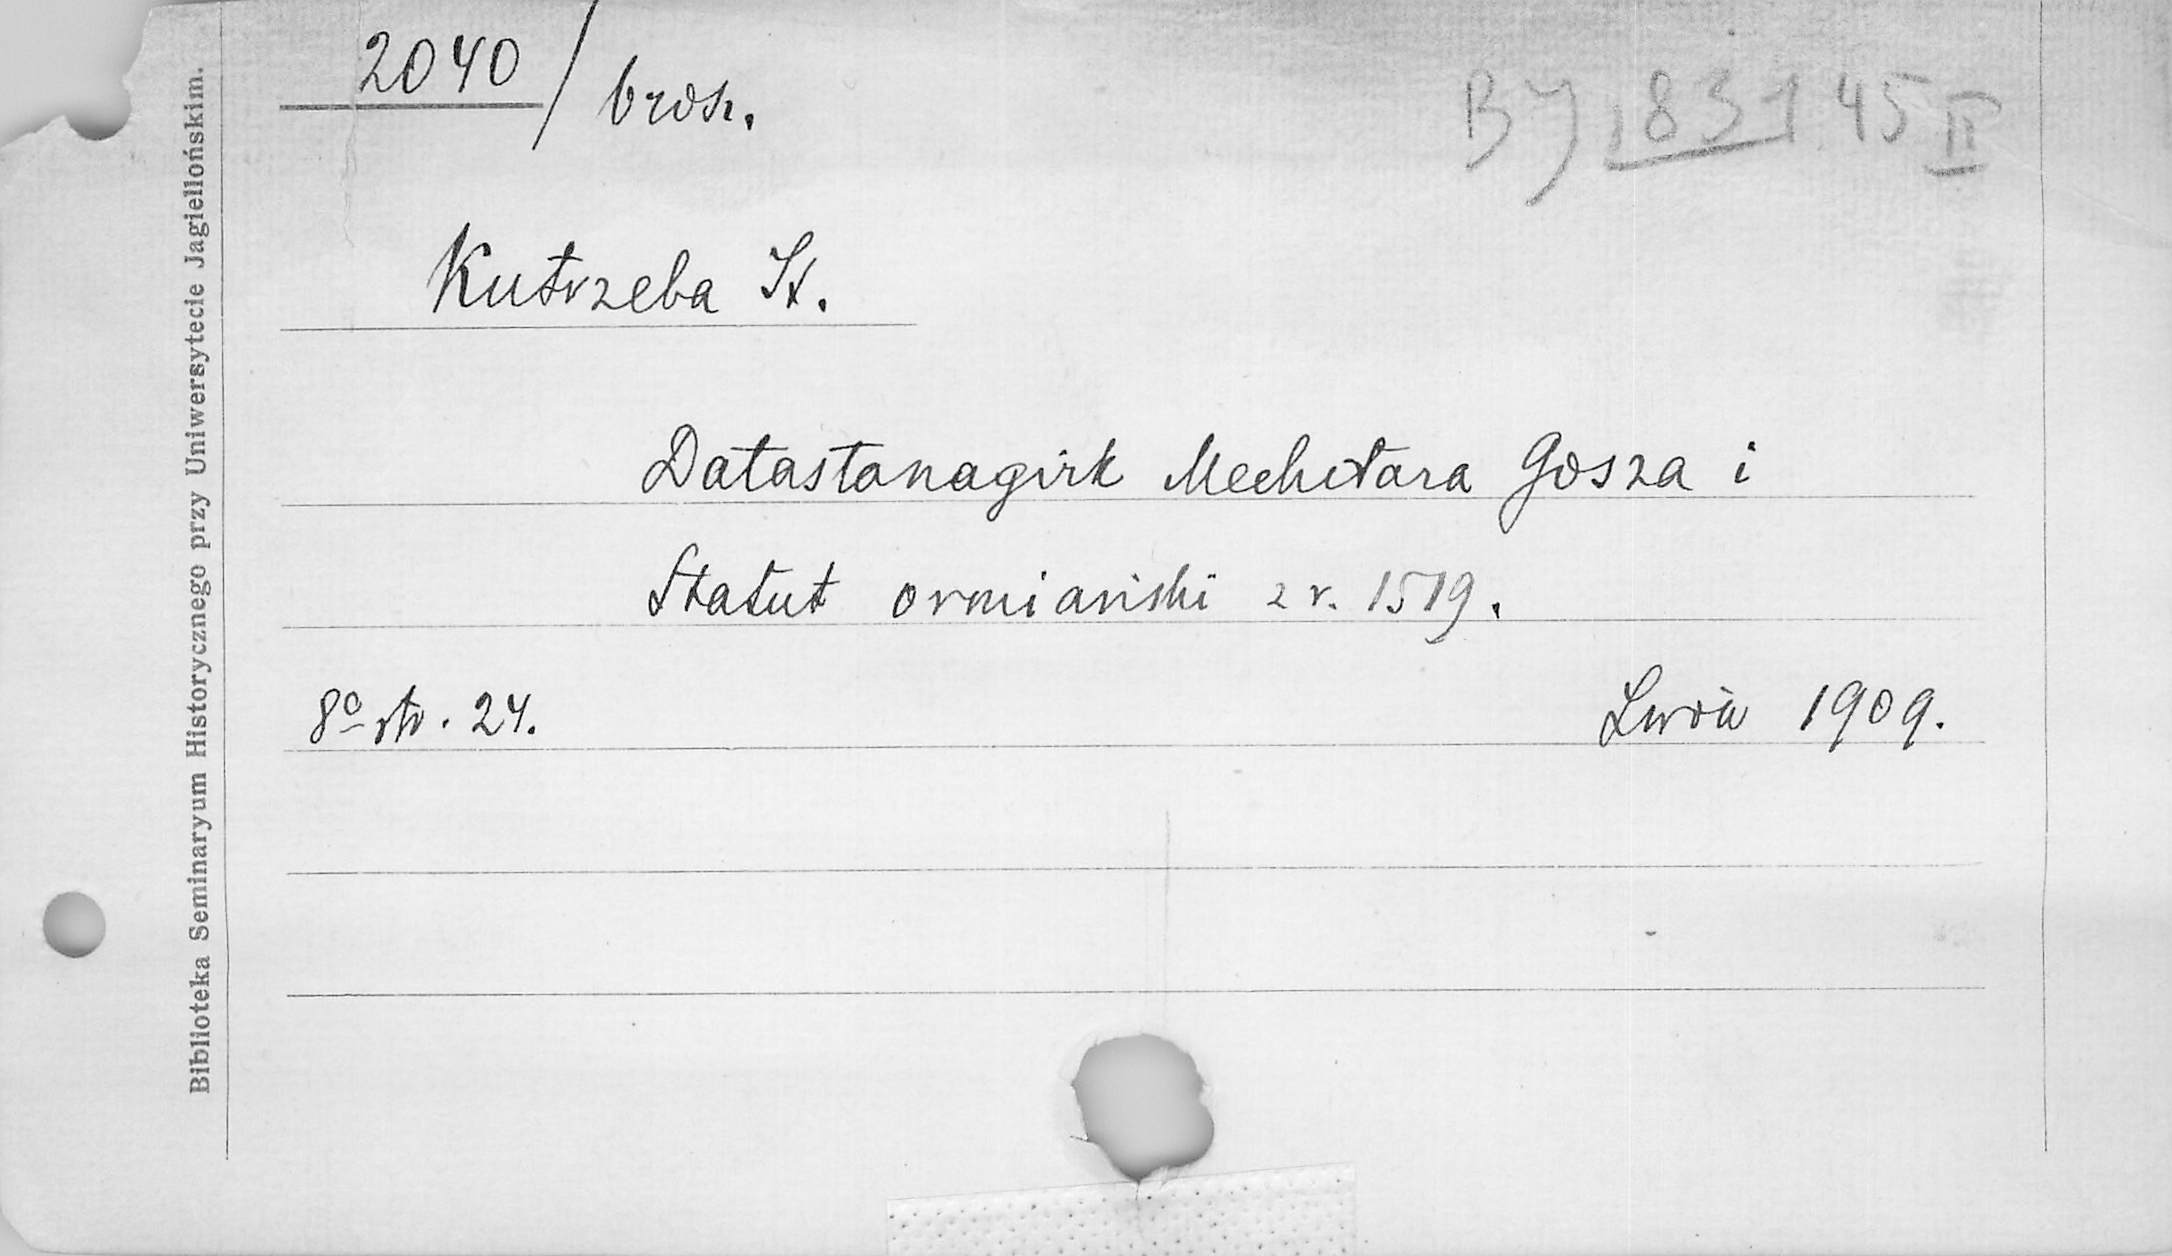 2040 / brosz.
BJ 183145 II
Kutrzeba St.
Datastanagirk Mechitara Gosza i
Statut ormiański z r. 1519.
8º str. 24.
Lwów 1909.
Biblioteka Seminaryum Historycznego przy Uniwersytecie Jagiellońskim.